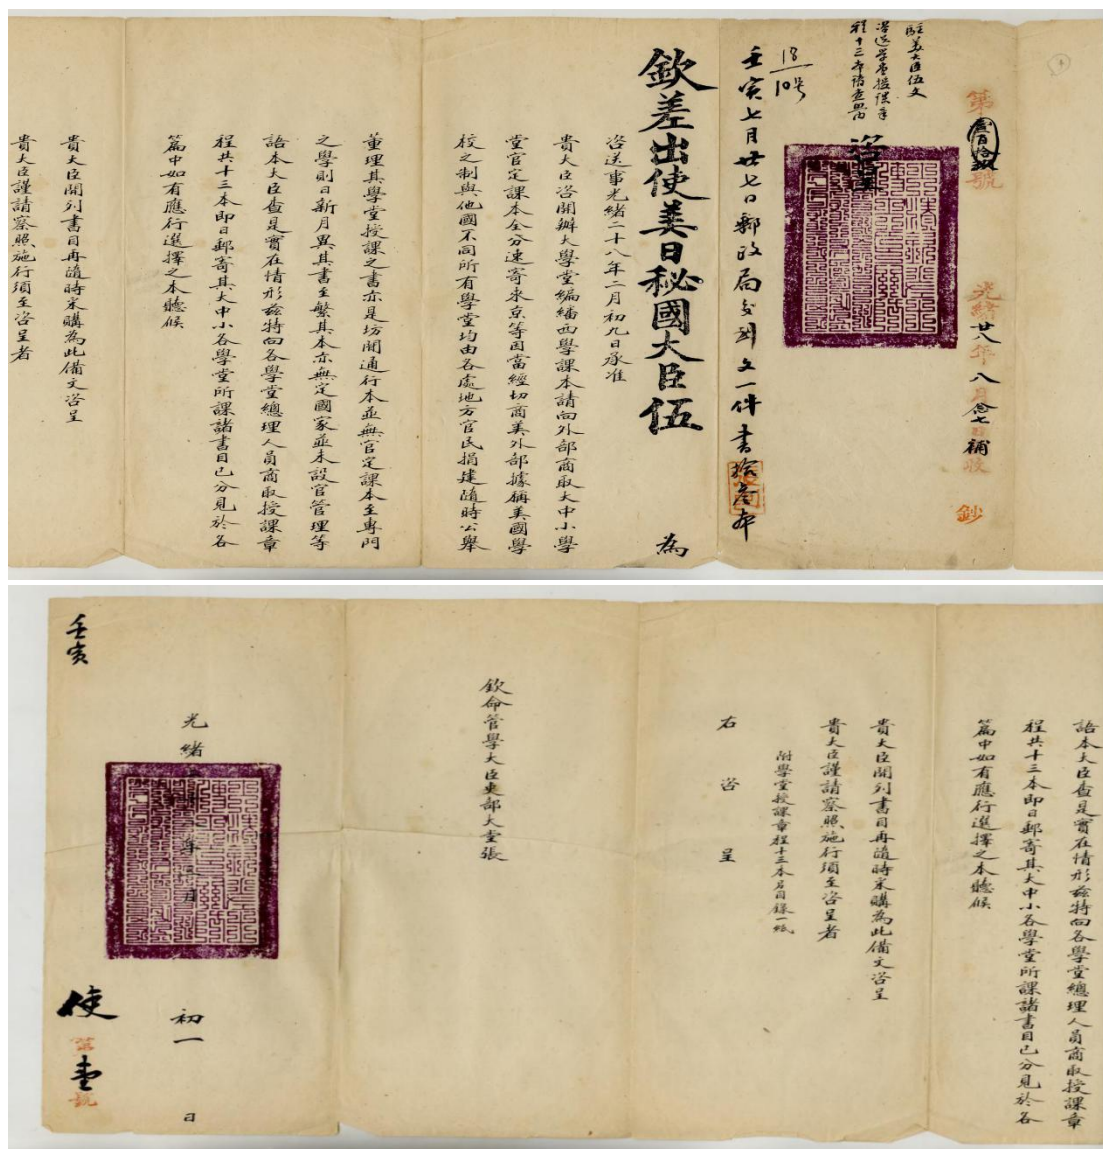 第壹百拾號
光緒廿八年八月念七日補收
鈔
駐美大臣伍文
咨送學堂授課章
程十三本請查照
咨呈
18/10号
壬寅七月廿七日郵政局交到文一件書拾叁本
欽差出使美日秘國大臣伍
為
咨送事光緒二十八年二月初九日承准
貴大臣咨開辦大學堂編繙西學課本請向外部商取大中小學
堂官定課本全分速寄來京等因當經切商美外部據稱美國學
校之制與他國不同所有學堂均由各處地方官民捐建隨時公舉
董理其學堂授課之書亦是坊間通行本並無官定課本至專門
之學則日新月異其書至繁其本亦無定國家並未設官管理等
語本大臣查是實在情形茲特向各學堂總理人員商取授課章
程共十三本即日郵寄其大中小各學堂所課諸書目已分見於各
篇中如有應行選擇之本聽候
貴大臣開列書目再隨時采購為此備文咨呈
貴大臣謹請察照施行須至咨呈者
語本大臣查是實在情形茲特向各學堂總理人員商取授課章
程共十三本即日郵寄其大中小各學堂所課諸書目已分見於各
篇中如有應行選擇之本聽候
貴大臣開列書目再隨時采購為此備文咨呈
貴大臣謹請察照施行須至咨呈者
附學堂授課章程十三本名目錄一紙
右咨呈
欽命管學大臣吏部大堂張
光緒
年
月
初一日
使
第壹號
壬寅